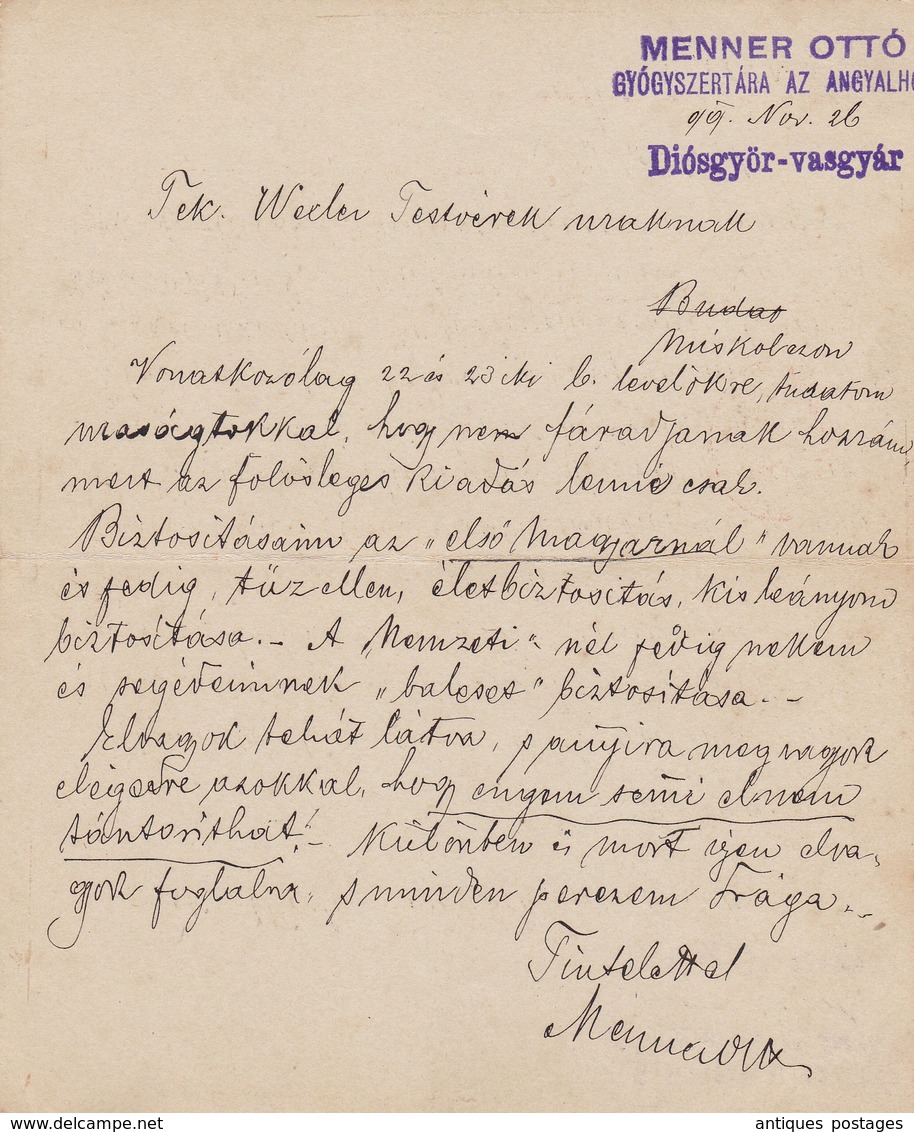 MENNER OTTÓ
GYÓGYSZERTÁRA AZ ANGYALHO
99. Nov. 26
Diósgyör-vasgyár
Tek. Wexler Testvérek uraknak
Budap
Miskolczon
Vonatkozólag 22 és 23 iki b. levelökre, tudatom
uraságtokkal, hogy nem fáradjanak hozzám,
mert az fölösleges kiadás lenne csak.
Biztositásaim az „első Magyarnál" vannak
és pedig, tűz ellen, életbiztositás, kis leányom
biztosítása. - A „Nemzeti"-nél pedig nekem
és segédeimnek „baleset" biztosítása. -
Elvagyok tehát látva, s annyira megvagyok
elégedve azokkal, hogy engem semmi el nem
tántorithat! - Különben is most igen elva-
gyok foglalva, s minden perczem drága. -
Tisztelettel
Menner Ottó
antiques postages